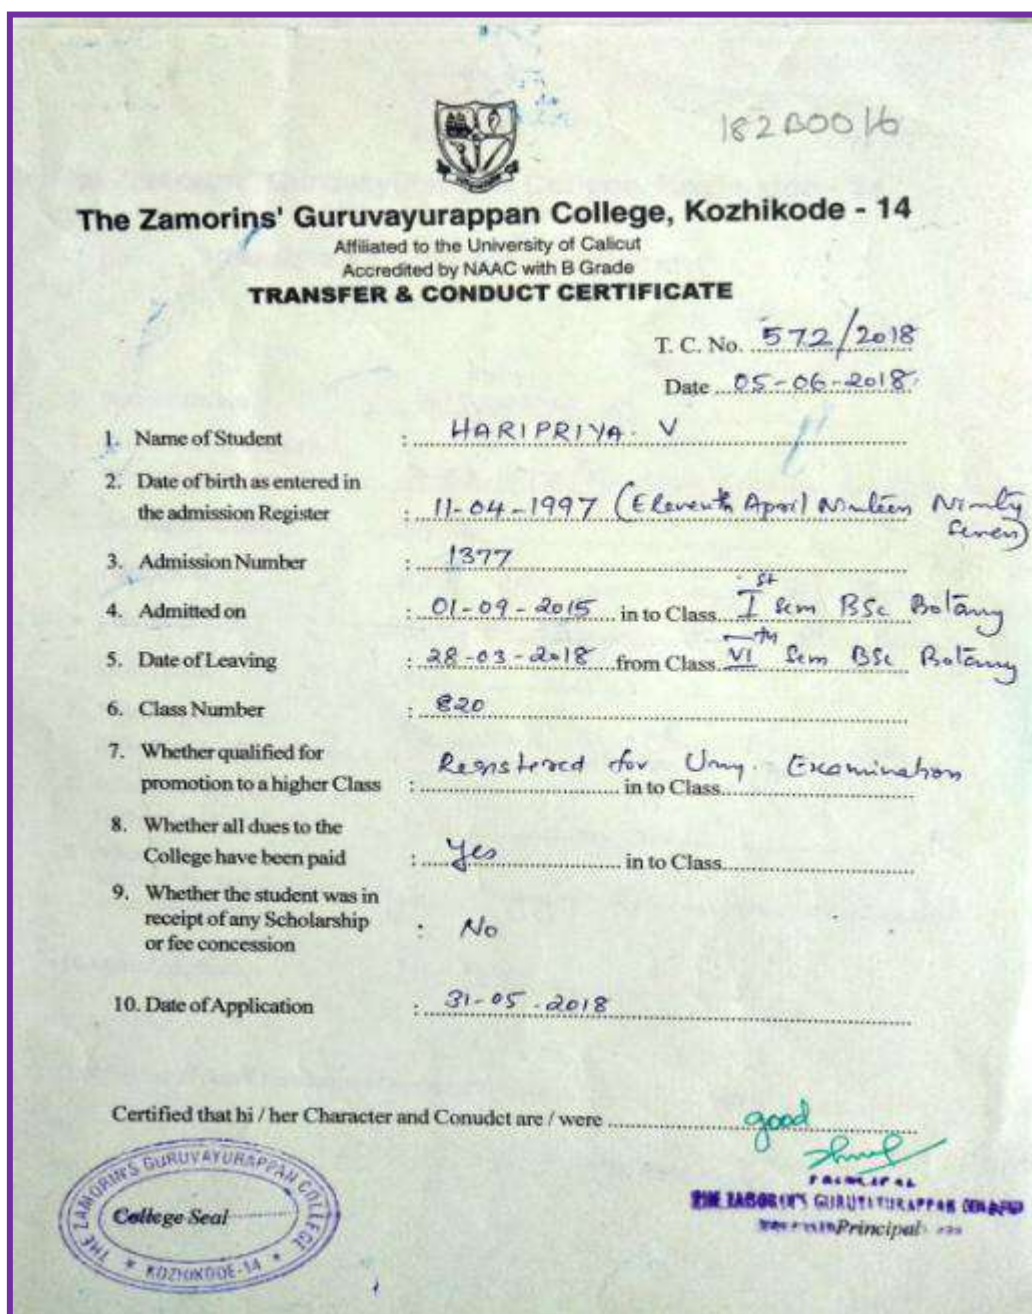 182B0016
The Zamorins' Guruvayurappan College, Kozhikode - 14
Affiliated to the University of Calicut
Accredited by NAAC with B Grade
TRANSFER & CONDUCT CERTIFICATE
T. C. No. 572/2018
Date 05-06-2018.
1. Name of Student : HARIPRIYA. V
2. Date of birth as entered in
the admission Register : 11-04-1997 (Eleventh April Ninteen Ninty
Seven)
3. Admission Number : 1377
4. Admitted on : 01-09-2015 in to Class I st Sem BSc Botany
5. Date of Leaving : 28-03-2018 from Class VI th Sem BSc Botany
6. Class Number : 820
7. Whether qualified for
Registered for Unvy. Examination
promotion to a higher Class : in to Class
8. Whether all dues to the
College have been paid : Yes in to Class
9. Whether the student was in
receipt of any Scholarship : No
or fee concession
10. Date of Application : 31-05-2018
Certified that hi / her Character and Conudct are / were good
PRINCIPAL
THE ZAMORIN'S GURUVAYURAPPAN COLLEGE
Principal
THE ZAMORIN'S GURUVAYURAPPAN COLLEGE
College Seal
* KOZHIKODE-14 *